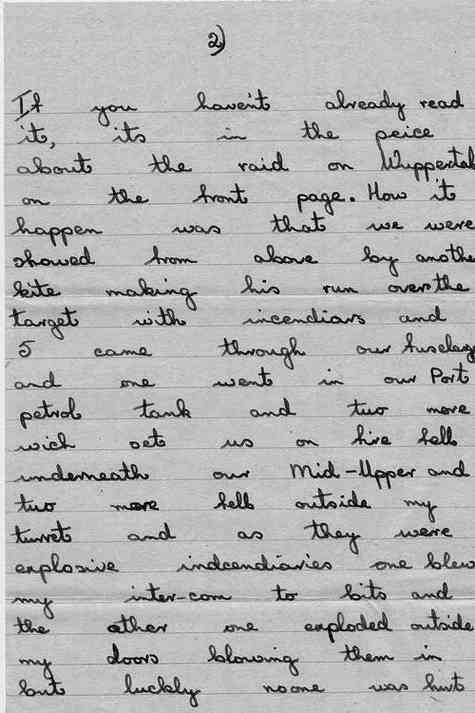 2)
If you havent already read
it, its in the peice
about the raid on Wuppertal
on the front page. How it
happen was that we were
showed from above by another
kite making his run over the
target with incendiars and
5 came through our fuselag
and one went in our Port
petrol tank and two more
wich sets us on fire fell
underneath our Mid-Upper and
two more fell outside my
turret and as they were
explosive indcendiaries one blew
my inter-com to bits and
the other one exploded outside
my doors blowing them in
but luckly noone was hurt